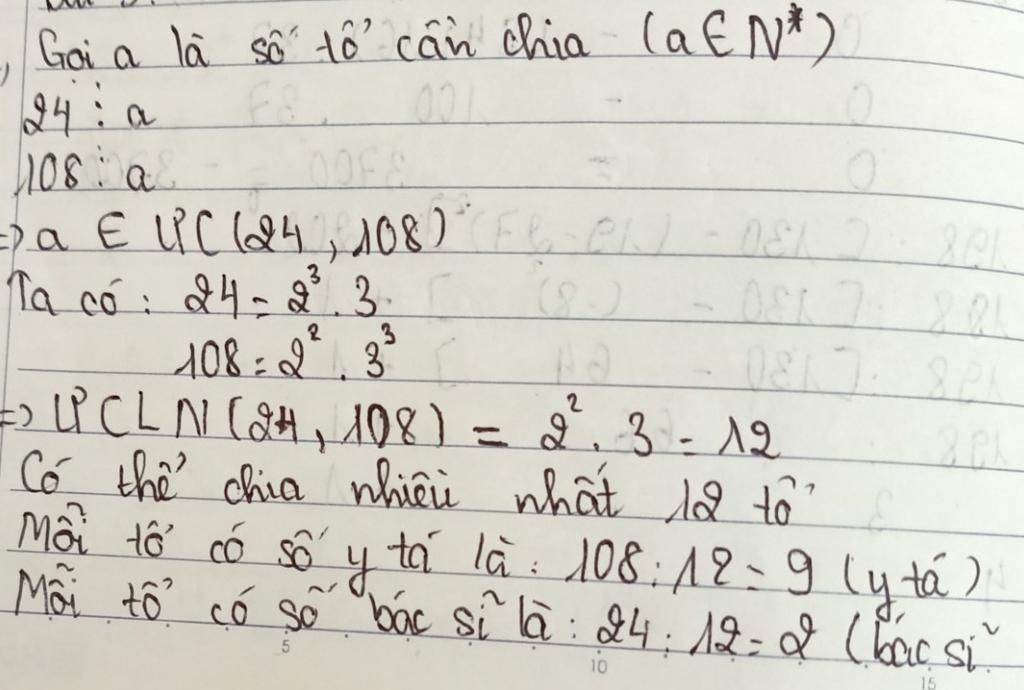 Gọi a là số tổ cần chia (a ∈ N*)
24 ⋮ a
108 ⋮ a
=> a ∈ ƯC(24, 108)
Ta có: 24 = 2³ . 3
108 = 2² . 3³
=> ƯCLN(24, 108) = 2² . 3 = 12
Có thể chia nhiều nhất 12 tổ
Mỗi tổ có số y tá là: 108 : 12 = 9 (y tá)
Mỗi tổ có số bác sĩ là: 24 : 12 = 2 (bác sĩ
5 10 15